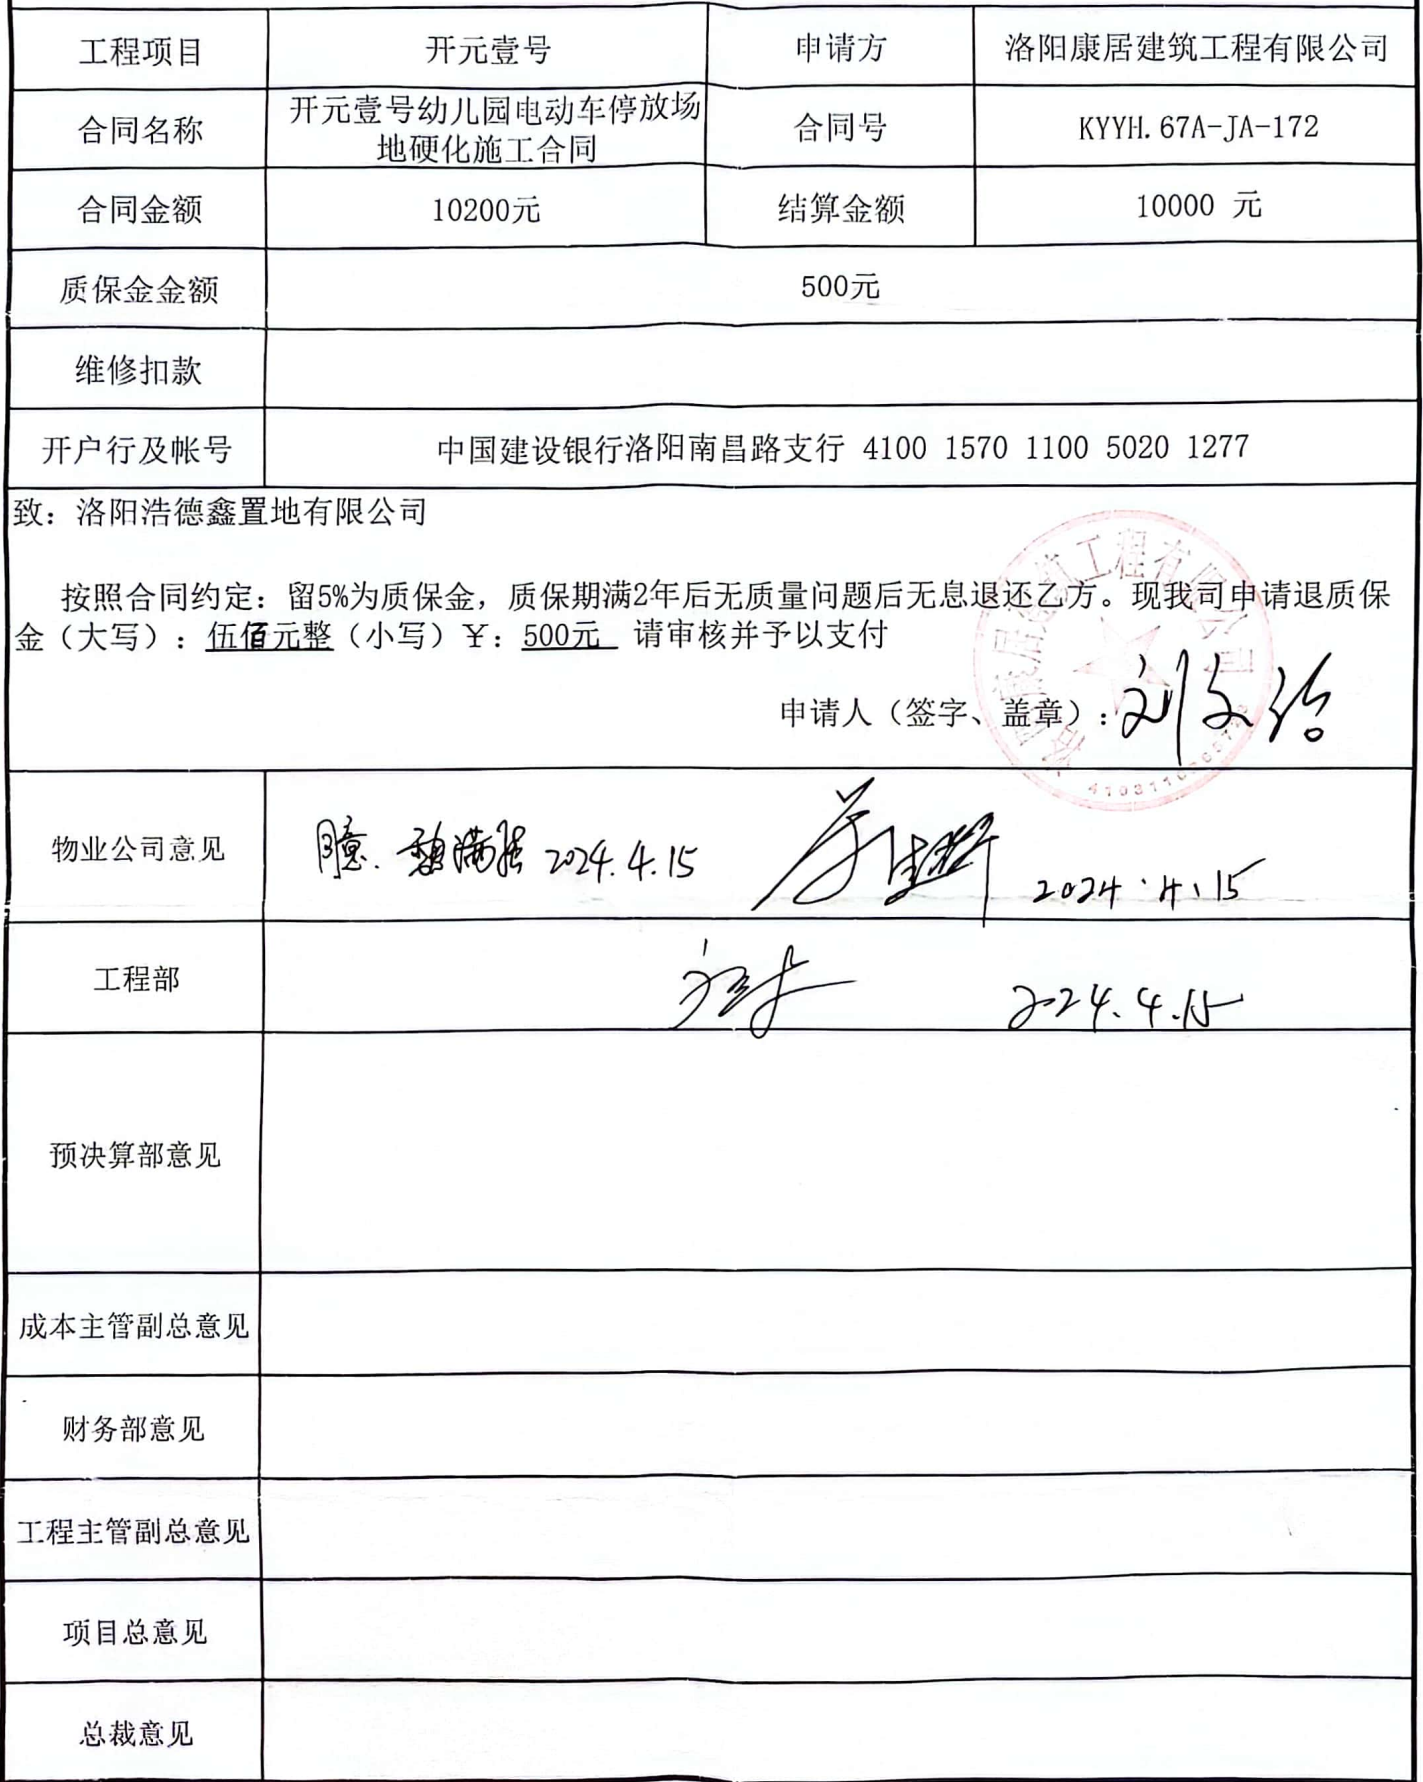 工程项目 开元壹号 申请方 洛阳康居建筑工程有限公司
合同名称 开元壹号幼儿园电动车停放场
地硬化施工合同 合同号 KYYH.67A-JA-172
合同金额 10200元 结算金额 10000 元
质保金金额 500元
维修扣款
开户行及帐号 中国建设银行洛阳南昌路支行 4100 1570 1100 5020 1277
致：洛阳浩德鑫置地有限公司
按照合同约定：留5%为质保金，质保期满2年后无质量问题后无息退还乙方。现我司申请退质保
金（大写）：伍佰元整（小写）￥：500元 请审核并予以支付
申请人（签字、盖章）：刘文治
物业公司意见 2024.4.15 2024.4.15
工程部 2024.4.15
预决算部意见
成本主管副总意见
财务部意见
工程主管副总意见
项目总意见
总裁意见